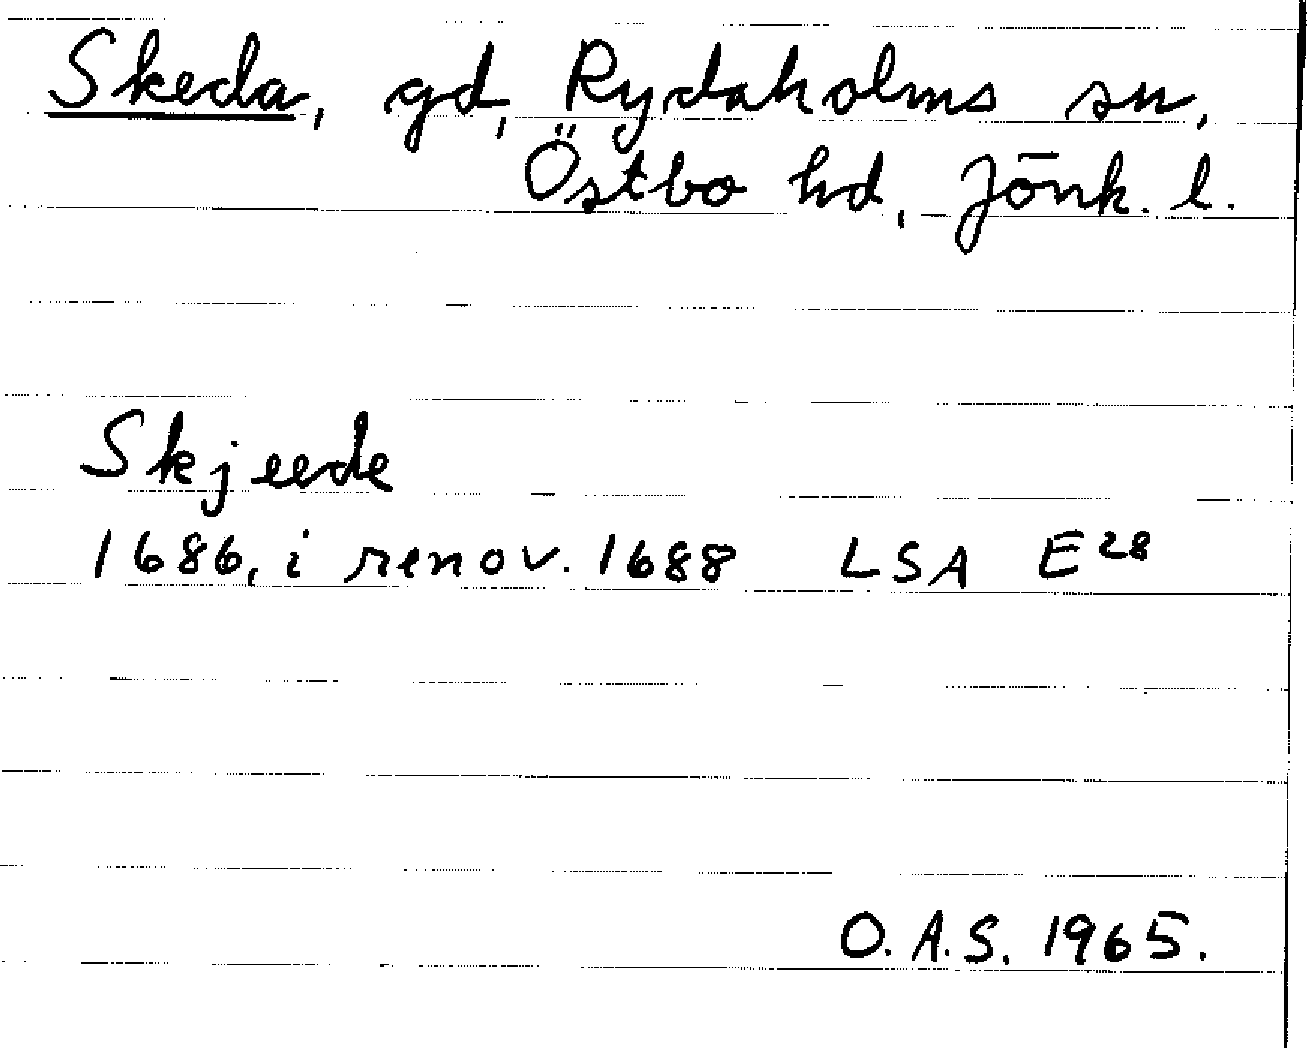 Skeda, gd, Rydaholms sn,
Östbo hd, Jönk. l.
Skjeede
1686, i renov. 1688 LSA E28
O.A.S. 1965.